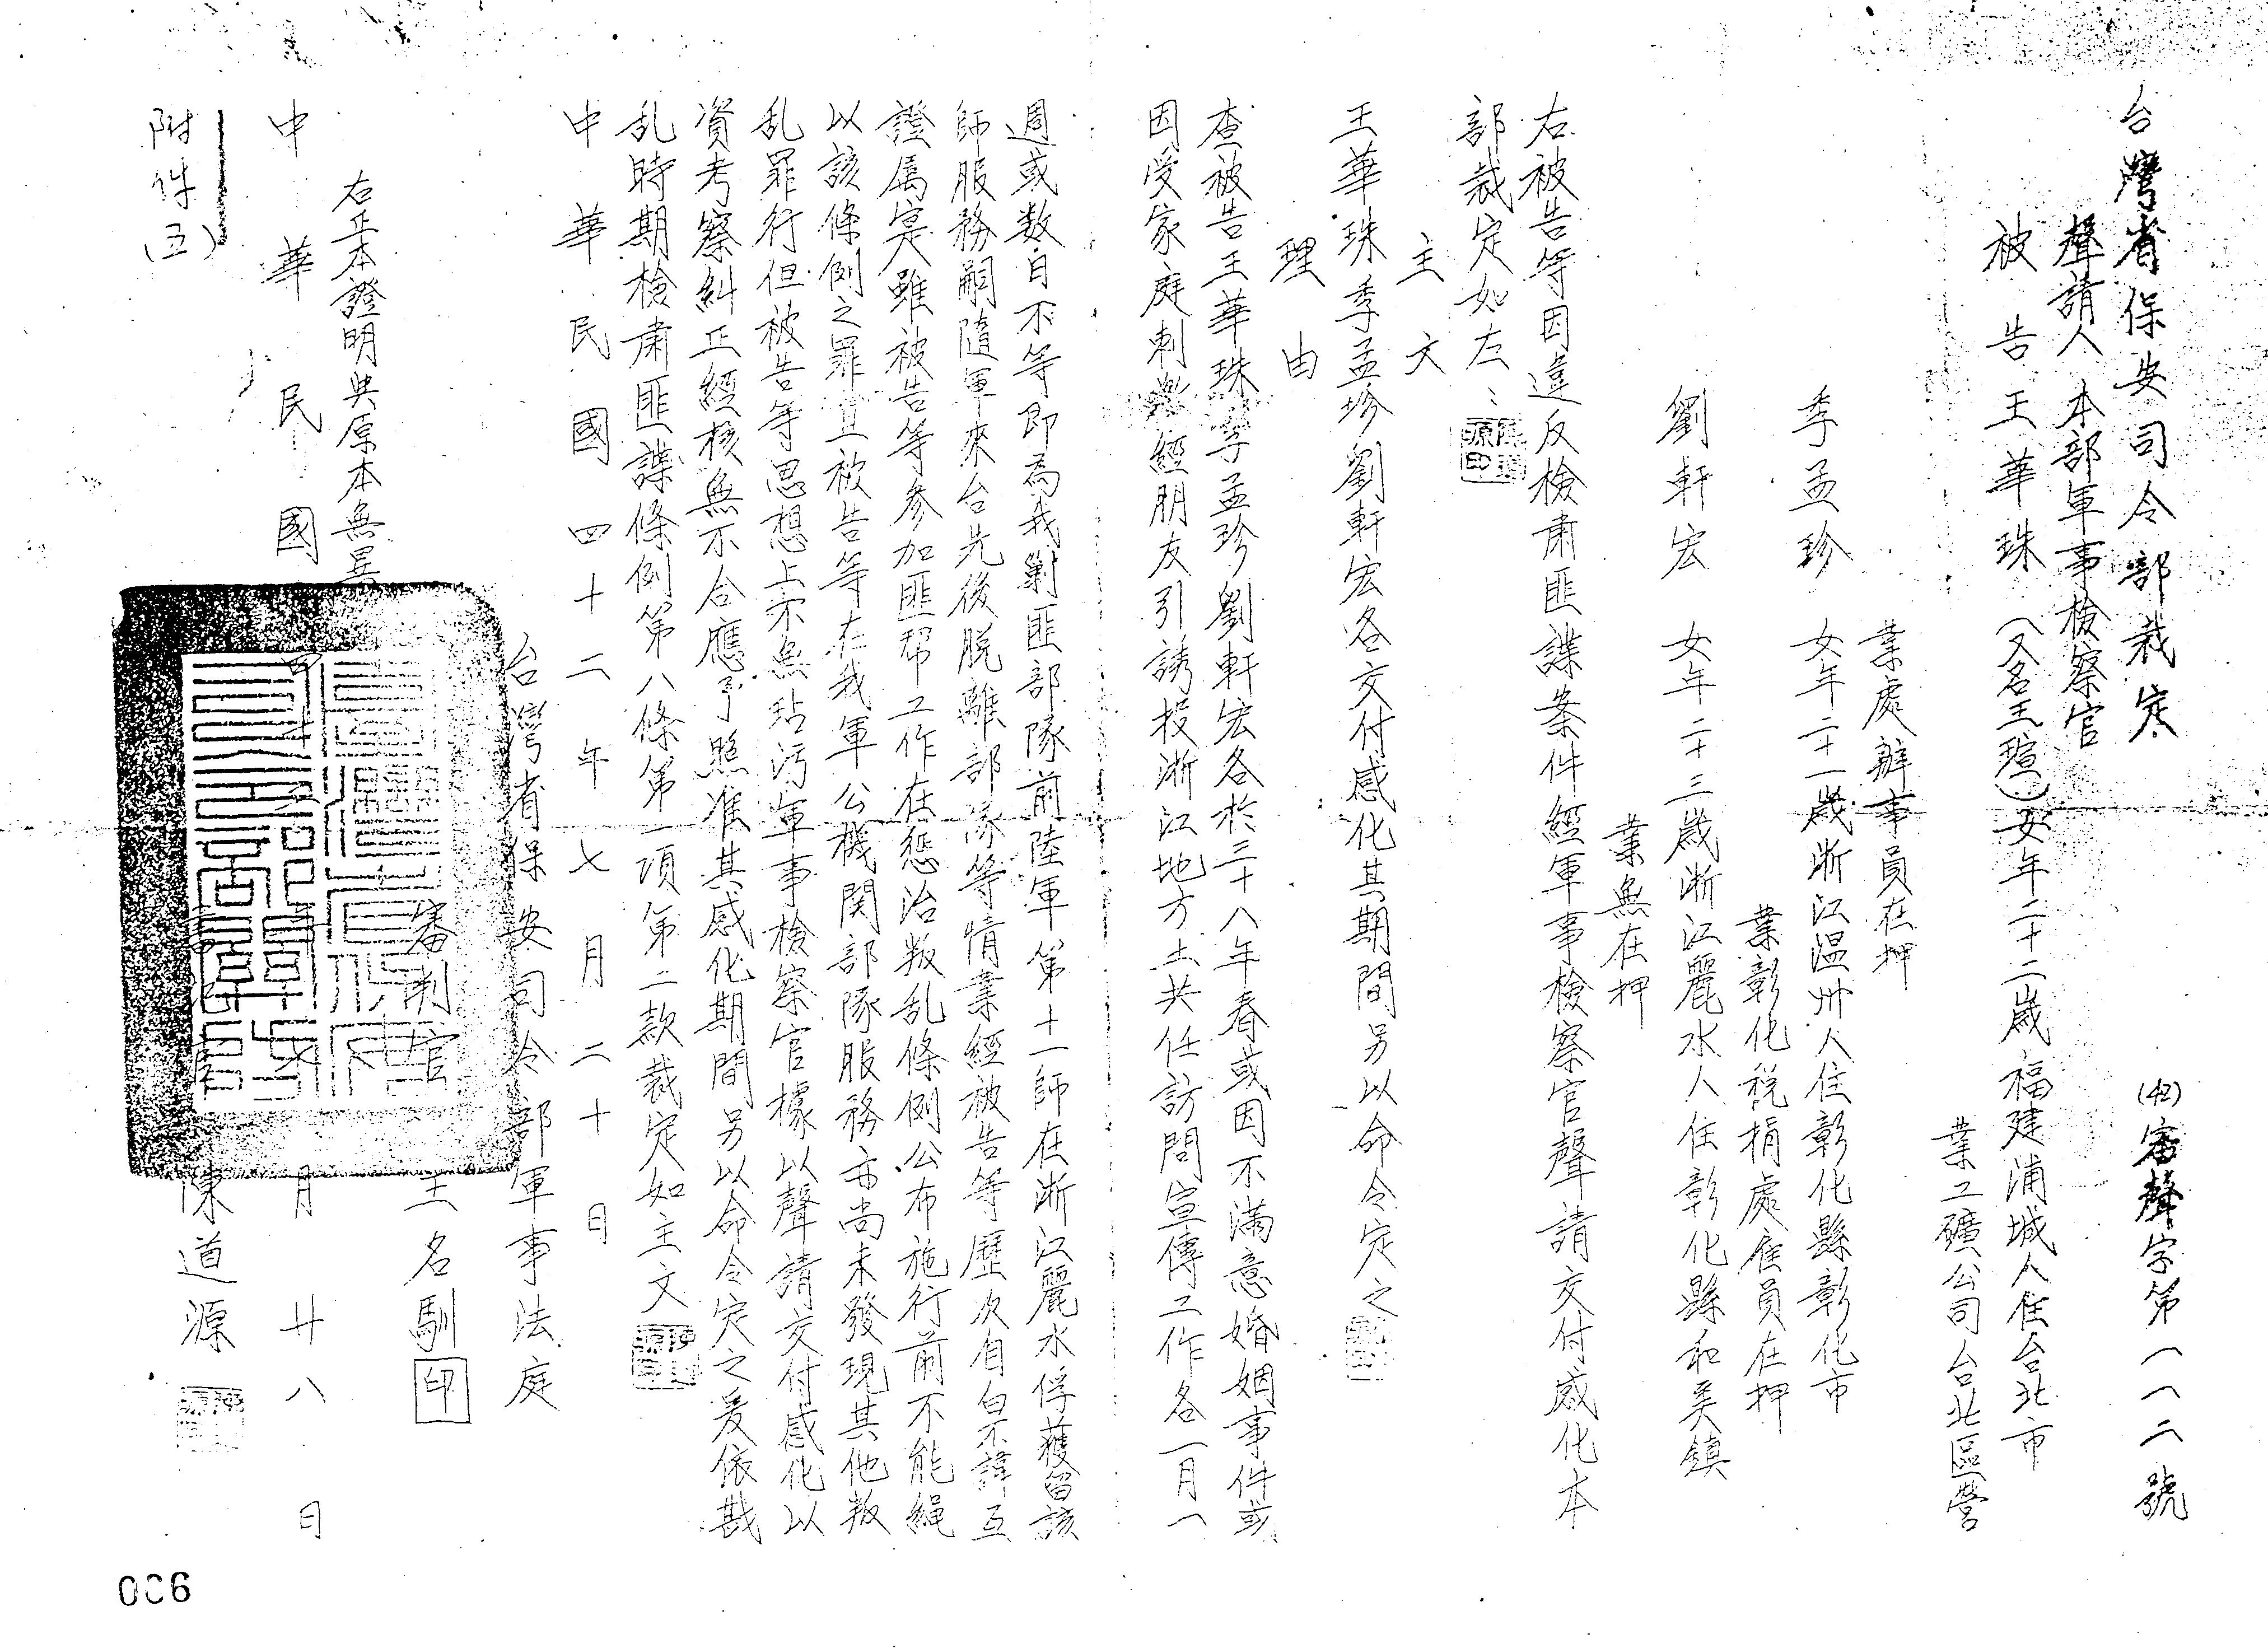 台灣省保安司令部裁定
(42)審聲字第一一二號
聲請人 本部軍事檢察官
被告王華珠(又名王瑄)女年二十二歲福建浦城人住台北市
業工礦公司台北區營
業處辦事員在押
季孟珍 女年二十一歲浙江溫州人住彰化縣彰化市
業彰化稅捐處雇員在押
劉軒宏 女年二十三歲浙江麗水人住彰化縣和美鎮
業無在押
右被告等因違反檢肅匪諜案件經軍事檢察官聲請交付感化本
部裁定如左:
主文
王華珠季孟珍劉軒宏各交付感化其期間另以命令定之
理由
查被告王華珠季孟珍劉軒宏各於三十八年春或因不滿意婚姻事件或
因受家庭刺激經朋友引誘投浙江地方土共任訪問宣傳工作各一月一
週或数日不等即為我剿匪部隊前陸軍第十一師在浙江麗水俘獲留該
師服務嗣隨軍來台先後脱離部隊等情業經被告等歷次自白不諱互
證屬寔雖被告等參加匪帮工作在懲治叛乱條例公布施行前不能繩
以該條例之罪且被告等在我軍公機関部隊服務亦尚未發現其他叛
乱罪行但被告等思想上不無玷污軍事檢察官據以聲請交付感化以
資考察糾正經核無不合應予照准其感化期間另以命令定之爰依戡
乱時期檢肅匪諜條例第八條第一項第二款裁定如主文
中華民國四十二年七月二十日
台灣省保安司令部軍事法庭
審判官 王名馴 印
右正本證明與原本無異
中華民國四十二年七月廿八日
書記官 陳道源
附件(五)
006